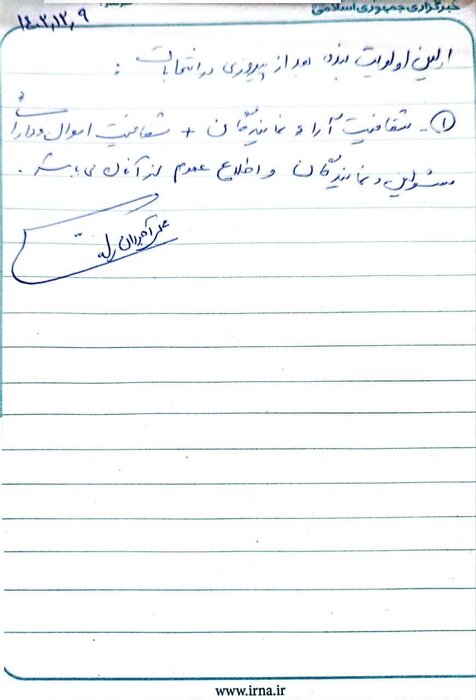 خبرگزاری جمهوری اسلامی
۱۴۰۲,۱۲,۹
اولین اولویت بنده بعد از پیروزی در انتخابات :
۱- شفافیت آراء نمایندگان + شفافیت اموال و دارائی
مسئولین و نمایندگان و اطلاع عموم از آنان می باشد .
www.irna.ir